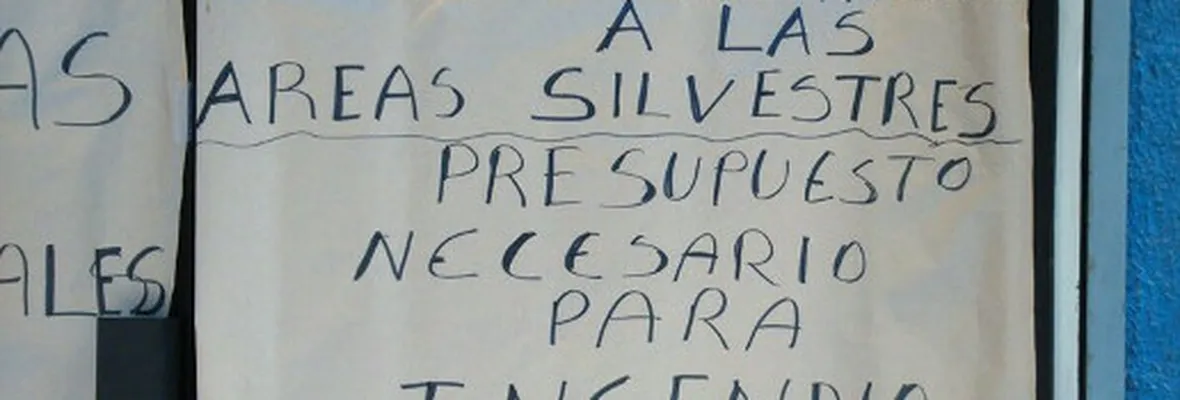 AS
ALES
A LAS
AREAS SILVESTRES
PRESUPUESTO
NECESARIO
PARA
INCENDIO